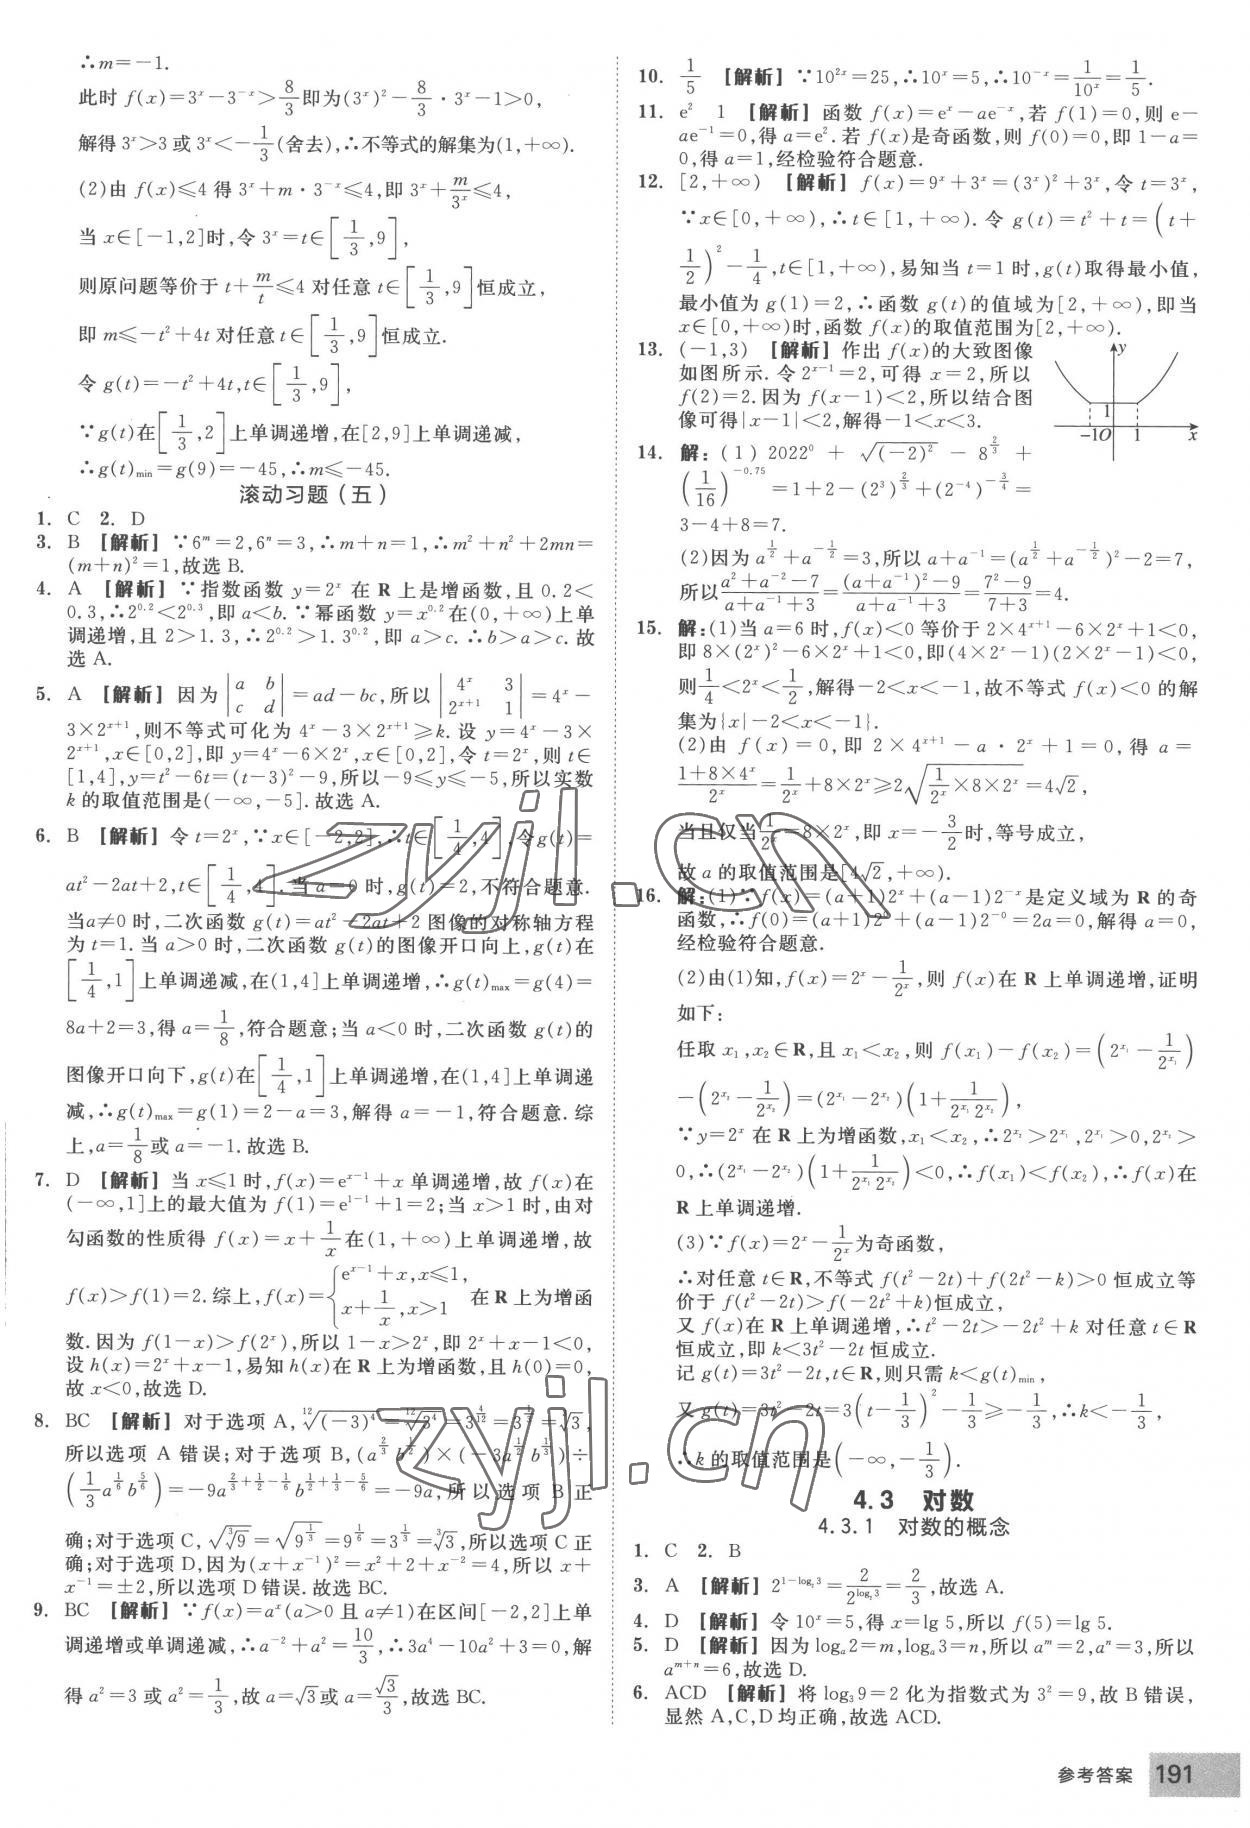 ∴m=-1.
此时 f(x)=3ˣ-3⁻ˣ>8/3即为(3ˣ)²-8/3·3ˣ-1>0,
解得 3ˣ>3 或 3ˣ<-1/3(舍去),∴不等式的解集为(1,+∞).
(2)由 f(x)≤4 得 3ˣ+m·3⁻ˣ≤4,即 3ˣ+m/3ˣ≤4,
当 x∈[-1,2]时,令 3ˣ=t∈[1/3,9],
则原问题等价于 t+m/t≤4 对任意 t∈[1/3,9]恒成立,
即 m≤-t²+4t 对任意 t∈[1/3,9]恒成立.
令 g(t)=-t²+4t,t∈[1/3,9],
∵g(t)在[1/3,2]上单调递增,在[2,9]上单调递减,
∴g(t)min=g(9)=-45,∴m≤-45.
滚动习题(五)
1. C 2. D
3. B 【解析】∵6ᵐ=2,6ⁿ=3,∴m+n=1,∴m²+n²+2mn=
(m+n)²=1,故选 B.
4. A 【解析】∵指数函数 y=2ˣ 在 R 上是增函数,且 0.2<
0.3,∴2^0.2<2^0.3,即 a<b.∵幂函数 y=x^0.2在(0,+∞)上单
调递增,且 2>1.3,∴2^0.2>1.3^0.2,即 a>c.∴b>a>c.故
选 A.
5. A 【解析】因为|a b; c d|=ad-bc,所以|4ˣ 3; 2^(x+1) 1|=4ˣ-
3×2^(x+1),则不等式可化为 4ˣ-3×2^(x+1)≥k.设 y=4ˣ-3×
2^(x+1),x∈[0,2],即 y=4ˣ-6×2ˣ,x∈[0,2],令 t=2ˣ,则 t∈
[1,4],y=t²-6t=(t-3)²-9,所以-9≤y≤-5,所以实数
k 的取值范围是(-∞,-5].故选 A.
6. B 【解析】令 t=2ˣ,∵x∈[-2,2],∴t∈[1/4,4],令g(t)=
at²-2at+2,t∈[1/4,4].当 a=0 时,g(t)=2,不符合题意.
当a≠0 时,二次函数 g(t)=at²-2at+2 图像的对称轴方程
为 t=1.当 a>0 时,二次函数 g(t)的图像开口向上,g(t)在
[1/4,1]上单调递减,在(1,4]上单调递增,∴g(t)max=g(4)=
8a+2=3,得 a=1/8,符合题意;当 a<0 时,二次函数 g(t)的
图像开口向下,g(t)在[1/4,1]上单调递增,在(1,4]上单调递
减,∴g(t)max=g(1)=2-a=3,解得 a=-1,符合题意.综
上,a=1/8或 a=-1.故选 B.
7. D 【解析】当 x≤1 时,f(x)=e^(x-1)+x 单调递增,故 f(x)在
(-∞,1]上的最大值为 f(1)=e^(1-1)+1=2;当 x>1 时,由对
勾函数的性质得 f(x)=x+1/x在(1,+∞)上单调递增,故
f(x)>f(1)=2.综上,f(x)={e^(x-1)+x,x≤1, x+1/x,x>1 在 R 上为增函
数.因为 f(1-x)>f(2ˣ),所以 1-x>2ˣ,即 2ˣ+x-1<0,
设 h(x)=2ˣ+x-1,易知 h(x)在 R 上为增函数,且 h(0)=0,
故 x<0,故选 D.
8. BC 【解析】对于选项 A,¹²√(-3)⁴=¹²√3⁴=3^(4/12)=3^(1/3)=³√3,
所以选项 A 错误;对于选项 B,(a^(2/3)b^(1/2))×(-3a^(1/2)b^(1/3))÷
(1/3a^(1/6)b^(5/6))=-9a^(2/3+1/2-1/6)b^(1/2+1/3-5/6)=-9a,所以选项 B 正
确;对于选项 C,√(³√9)=√(9^(1/3))=9^(1/6)=3^(1/3)=³√3,所以选项 C 正
确;对于选项 D,因为(x+x⁻¹)²=x²+2+x⁻²=4,所以 x+
x⁻¹=±2,所以选项 D 错误.故选 BC.
9. BC 【解析】∵f(x)=aˣ(a>0 且 a≠1)在区间[-2,2]上单
调递增或单调递减,∴a⁻²+a²=10/3,∴3a⁴-10a²+3=0,解
得 a²=3 或 a²=1/3,故 a=√3或 a=√3/3,故选 BC.
10. 1/5 【解析】∵10^(2x)=25,∴10ˣ=5,∴10⁻ˣ=1/10ˣ=1/5.
11. e² 1 【解析】函数 f(x)=eˣ-ae⁻ˣ,若 f(1)=0,则 e-
ae⁻¹=0,得 a=e².若 f(x)是奇函数,则 f(0)=0,即 1-a=
0,得 a=1,经检验符合题意.
12. [2,+∞) 【解析】f(x)=9ˣ+3ˣ=(3ˣ)²+3ˣ,令 t=3ˣ,
∵x∈[0,+∞),∴t∈[1,+∞).令 g(t)=t²+t=(t+
1/2)²-1/4,t∈[1,+∞),易知当 t=1 时,g(t)取得最小值,
最小值为 g(1)=2,∴函数 g(t)的值域为[2,+∞),即当
x∈[0,+∞)时,函数 f(x)的取值范围为[2,+∞).
13. (-1,3) 【解析】作出 f(x)的大致图像
如图所示.令 2^(x-1)=2,可得 x=2,所以
f(2)=2.因为 f(x-1)<2,所以结合图
像可得|x-1|<2,解得-1<x<3.
y
1
-1 O 1 x
14. 解:(1) 2022⁰+√(-2)²-8^(2/3)+
(1/16)^(-0.75)=1+2-(2³)^(2/3)+(2⁻⁴)^(-3/4)=
3-4+8=7.
(2)因为 a^(1/2)+a^(-1/2)=3,所以 a+a⁻¹=(a^(1/2)+a^(-1/2))²-2=7,
所以(a²+a⁻²-7)/(a+a⁻¹+3)=((a+a⁻¹)²-9)/(a+a⁻¹+3)=(7²-9)/(7+3)=4.
15. 解:(1)当 a=6 时,f(x)<0 等价于 2×4^(x+1)-6×2ˣ+1<0,
即 8×(2ˣ)²-6×2ˣ+1<0,即(4×2ˣ-1)(2×2ˣ-1)<0,
则1/4<2ˣ<1/2,解得-2<x<-1,故不等式 f(x)<0 的解
集为{x|-2<x<-1}.
(2)由 f(x)=0,即 2×4^(x+1)-a·2ˣ+1=0,得 a=
(1+8×4ˣ)/2ˣ=1/2ˣ+8×2ˣ≥2√(1/2ˣ×8×2ˣ)=4√2,
当且仅当1/2ˣ=8×2ˣ,即 x=-3/2时,等号成立,
故 a 的取值范围是[4√2,+∞).
16. 解:(1)∵f(x)=(a+1)2ˣ+(a-1)2⁻ˣ是定义域为 R 的奇
函数,∴f(0)=(a+1)2⁰+(a-1)2⁻⁰=2a=0,解得 a=0,
经检验符合题意.
(2)由(1)知,f(x)=2ˣ-1/2ˣ,则 f(x)在 R 上单调递增,证明
如下:
任取 x₁,x₂∈R,且 x₁<x₂,则 f(x₁)-f(x₂)=(2^x₁-1/2^x₁)
-(2^x₂-1/2^x₂)=(2^x₁-2^x₂)(1+1/(2^x₁2^x₂)),
∵y=2ˣ 在 R 上为增函数,x₁<x₂,∴2^x₂>2^x₁,2^x₁>0,2^x₂>
0,∴(2^x₁-2^x₂)(1+1/(2^x₁2^x₂))<0,∴f(x₁)<f(x₂),∴f(x)在
R 上单调递增.
(3)∵f(x)=2ˣ-1/2ˣ为奇函数,
∴对任意 t∈R,不等式 f(t²-2t)+f(2t²-k)>0 恒成立等
价于 f(t²-2t)>f(-2t²+k)恒成立,
又 f(x)在 R 上单调递增,∴t²-2t>-2t²+k 对任意 t∈R
恒成立,即 k<3t²-2t 恒成立.
记 g(t)=3t²-2t,t∈R,则只需 k<g(t)min,
又 g(t)=3t²-2t=3(t-1/3)²-1/3≥-1/3,∴k<-1/3,
∴k 的取值范围是(-∞,-1/3).
4.3 对数
4.3.1 对数的概念
1. C 2. B
3. A 【解析】2^(1-log₂3)=2/2^(log₂3)=2/3,故选 A.
4. D 【解析】令 10ˣ=5,得 x=lg 5,所以 f(5)=lg 5.
5. D 【解析】因为 logₐ2=m,logₐ3=n,所以 aᵐ=2,aⁿ=3,所以
a^(m+n)=6,故选 D.
6. ACD 【解析】将 log₃9=2 化为指数式为 3²=9,故 B 错误,
显然 A,C,D 均正确,故选 ACD.
zyjl.cn
zyjl.cn
参考答案 191